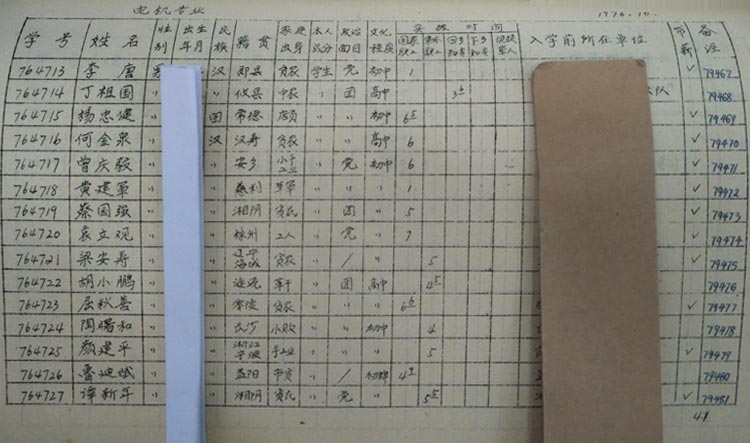 电机专业 1976.10.
学号 姓名 性别 出生年月 民族 籍贯 家庭出身 本人成分 政治面目 文化程度 实践时间 入学前所在单位 备注
764713 李唐 汉 贫农 学生 党 初中 1 ✓ 79467
764714 丁祖国 〃 〃 攸县 中农 〃 团 高中 队 79468
764715 杨忠健 〃 回 常德 店员 〃 〃 初中 ✓ 79469
764716 何金泉 〃 汉 汉寿 贫农 〃 高中 6 ✓ 79470
764717 曾庆毅 〃 〃 安乡 〃 党 初中 6 ✓ 79471
764718 黄建军 〃 〃 慈利 〃 〃 〃 1 ✓ 79472
764719 蔡国强 〃 〃 湘阴 贫民 〃 团 〃 5 ✓ 79473
764720 袁立观 〃 〃 株州 工人 〃 党 〃 7 ✓ 79474
764721 梁安寿 〃 〃 辽宁海城 贫农 〃 / 〃 5 ✓ 79475
764722 胡小鹏 〃 〃 革干 〃 团 高中 79476
764723 屈秋善 〃 〃 贫农 〃 〃 〃 ✓ 79477
764724 陶曙和 〃 〃 长沙 〃 〃 初中 4 79478
764725 颜建平 〃 〃 浙江宁波 手工业 〃 〃 〃 5 ✓ 79479
764726 〃 〃 益阳 〃 / 79480
764727 谭新年 〃 〃 湘阴 贫民 〃 党 〃 ✓ 79481